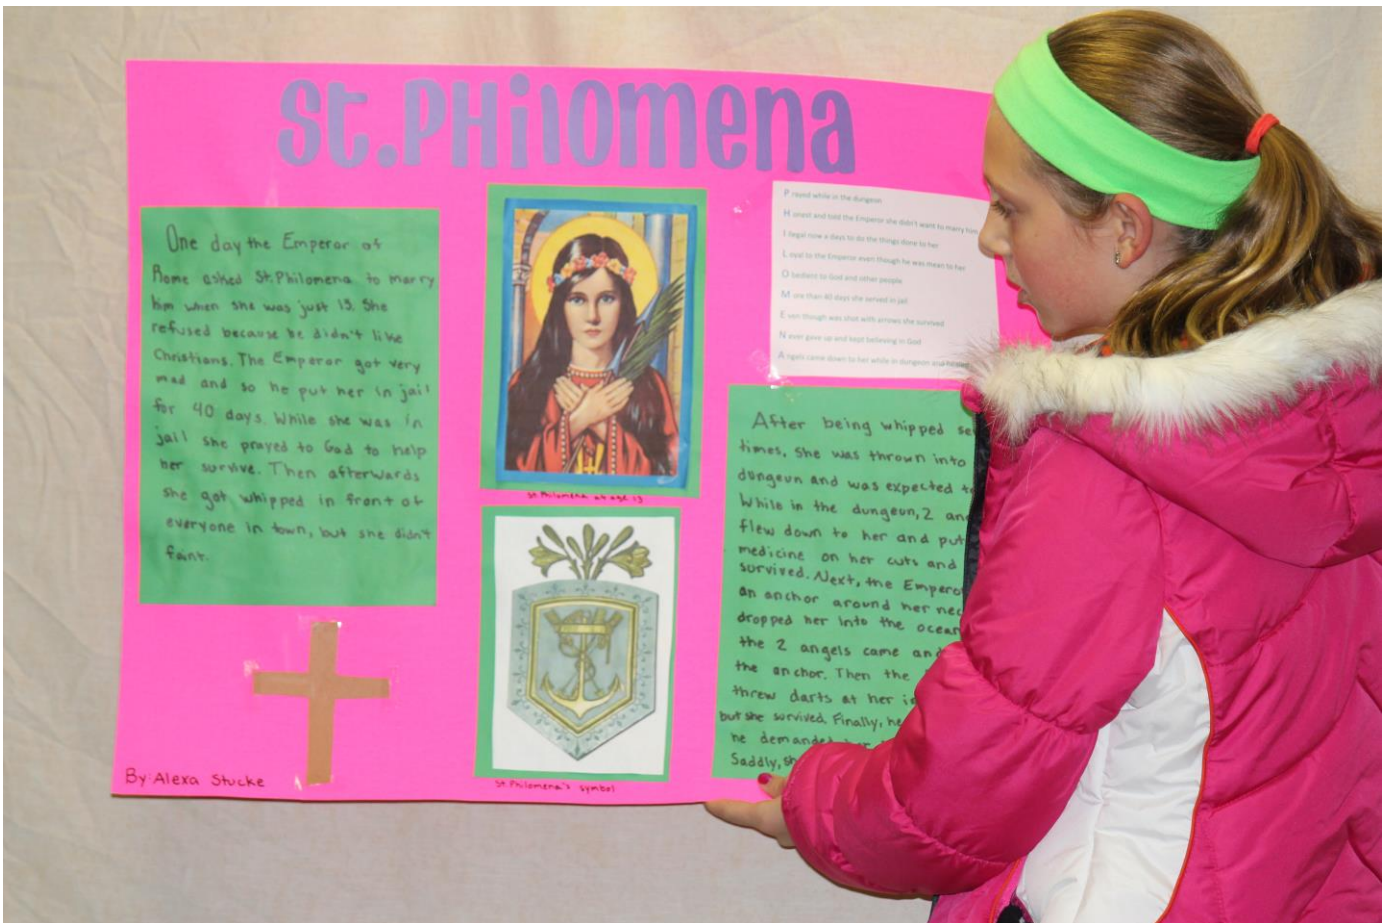 St. PHilomena
One day the Emperor of
Rome asked St. Philomena to marry
him when she was just 13. She
refused because he didn't like
Christians. The Emperor got very
mad and so he put her in jail
for 40 days. While she was in
jail she prayed to God to help
her survive. Then afterwards
she got whipped in front of
everyone in town, but she didn't
faint.
By: Alexa Stucke
St. Philomena at age 13
St. Philomena's symbol
P rayed while in the dungeon
H onest and told the Emperor she didn't want to marry him
I llegal now a days to do the things done to her
L oyal to the Emperor even though he was mean to her
O bedient to God and other people
M ore than 40 days she served in jail
E ven though was shot with arrows she survived
N ever gave up and kept believing in God
A ngels came down to her while in dungeon and
After being whipped
times, she was thrown into
dungeon and was expected
While in the dungeon, 2
flew down to her and put
medicine on her cuts and
survived. Next, the
an anchor around her
dropped her into the
the 2 angels came
the anchor. Then the
threw darts at her
but she survived. Finally, he
he demanded
Saddly,